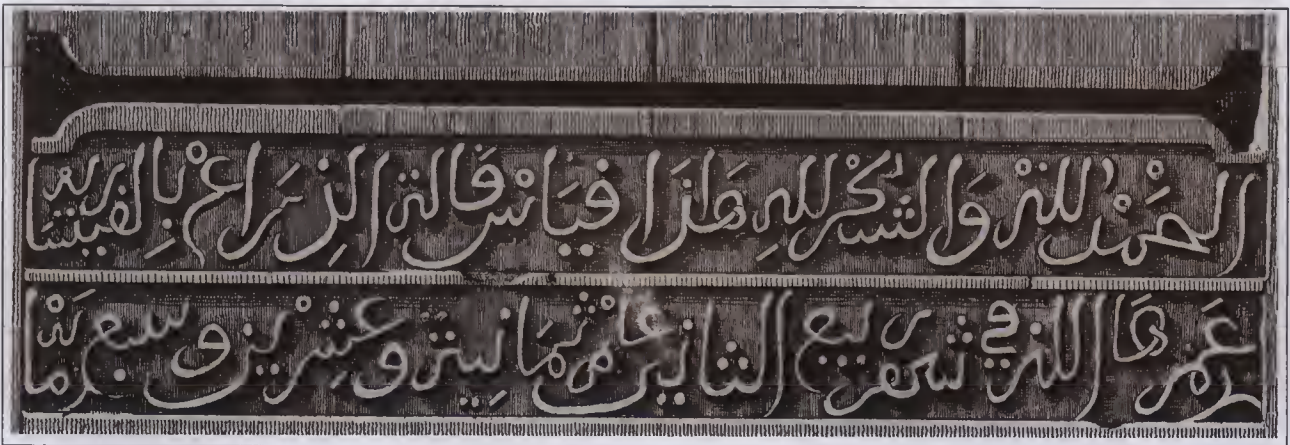 الحَمْدُ لله وَالشُكْر للهِ هَاذَا قيَاسْ قَالة الذرَاعْ بِالقيسارية
عَمرهَا الله في شهر ربيع الثاني عام ثمَانِية وعِشْرين وسبع مائة